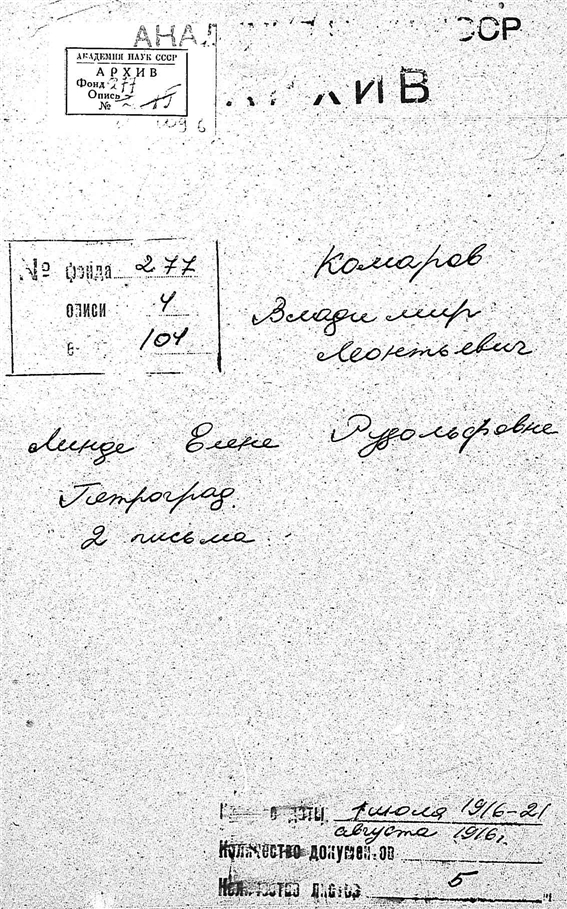 СССР
АРХИВ
АКАДЕМИЯ НАУК СССР
АРХИВ
Фонд 277
Опись
№
№ фонда 277
описи 4
104
Комаров
Владимир
Леонтьевич
Линде Елене Рудольфовне
Петроград.
2 письма
даты 1 июля 1916-21
августа 1916 г.
Количество документов
Количество листов 5